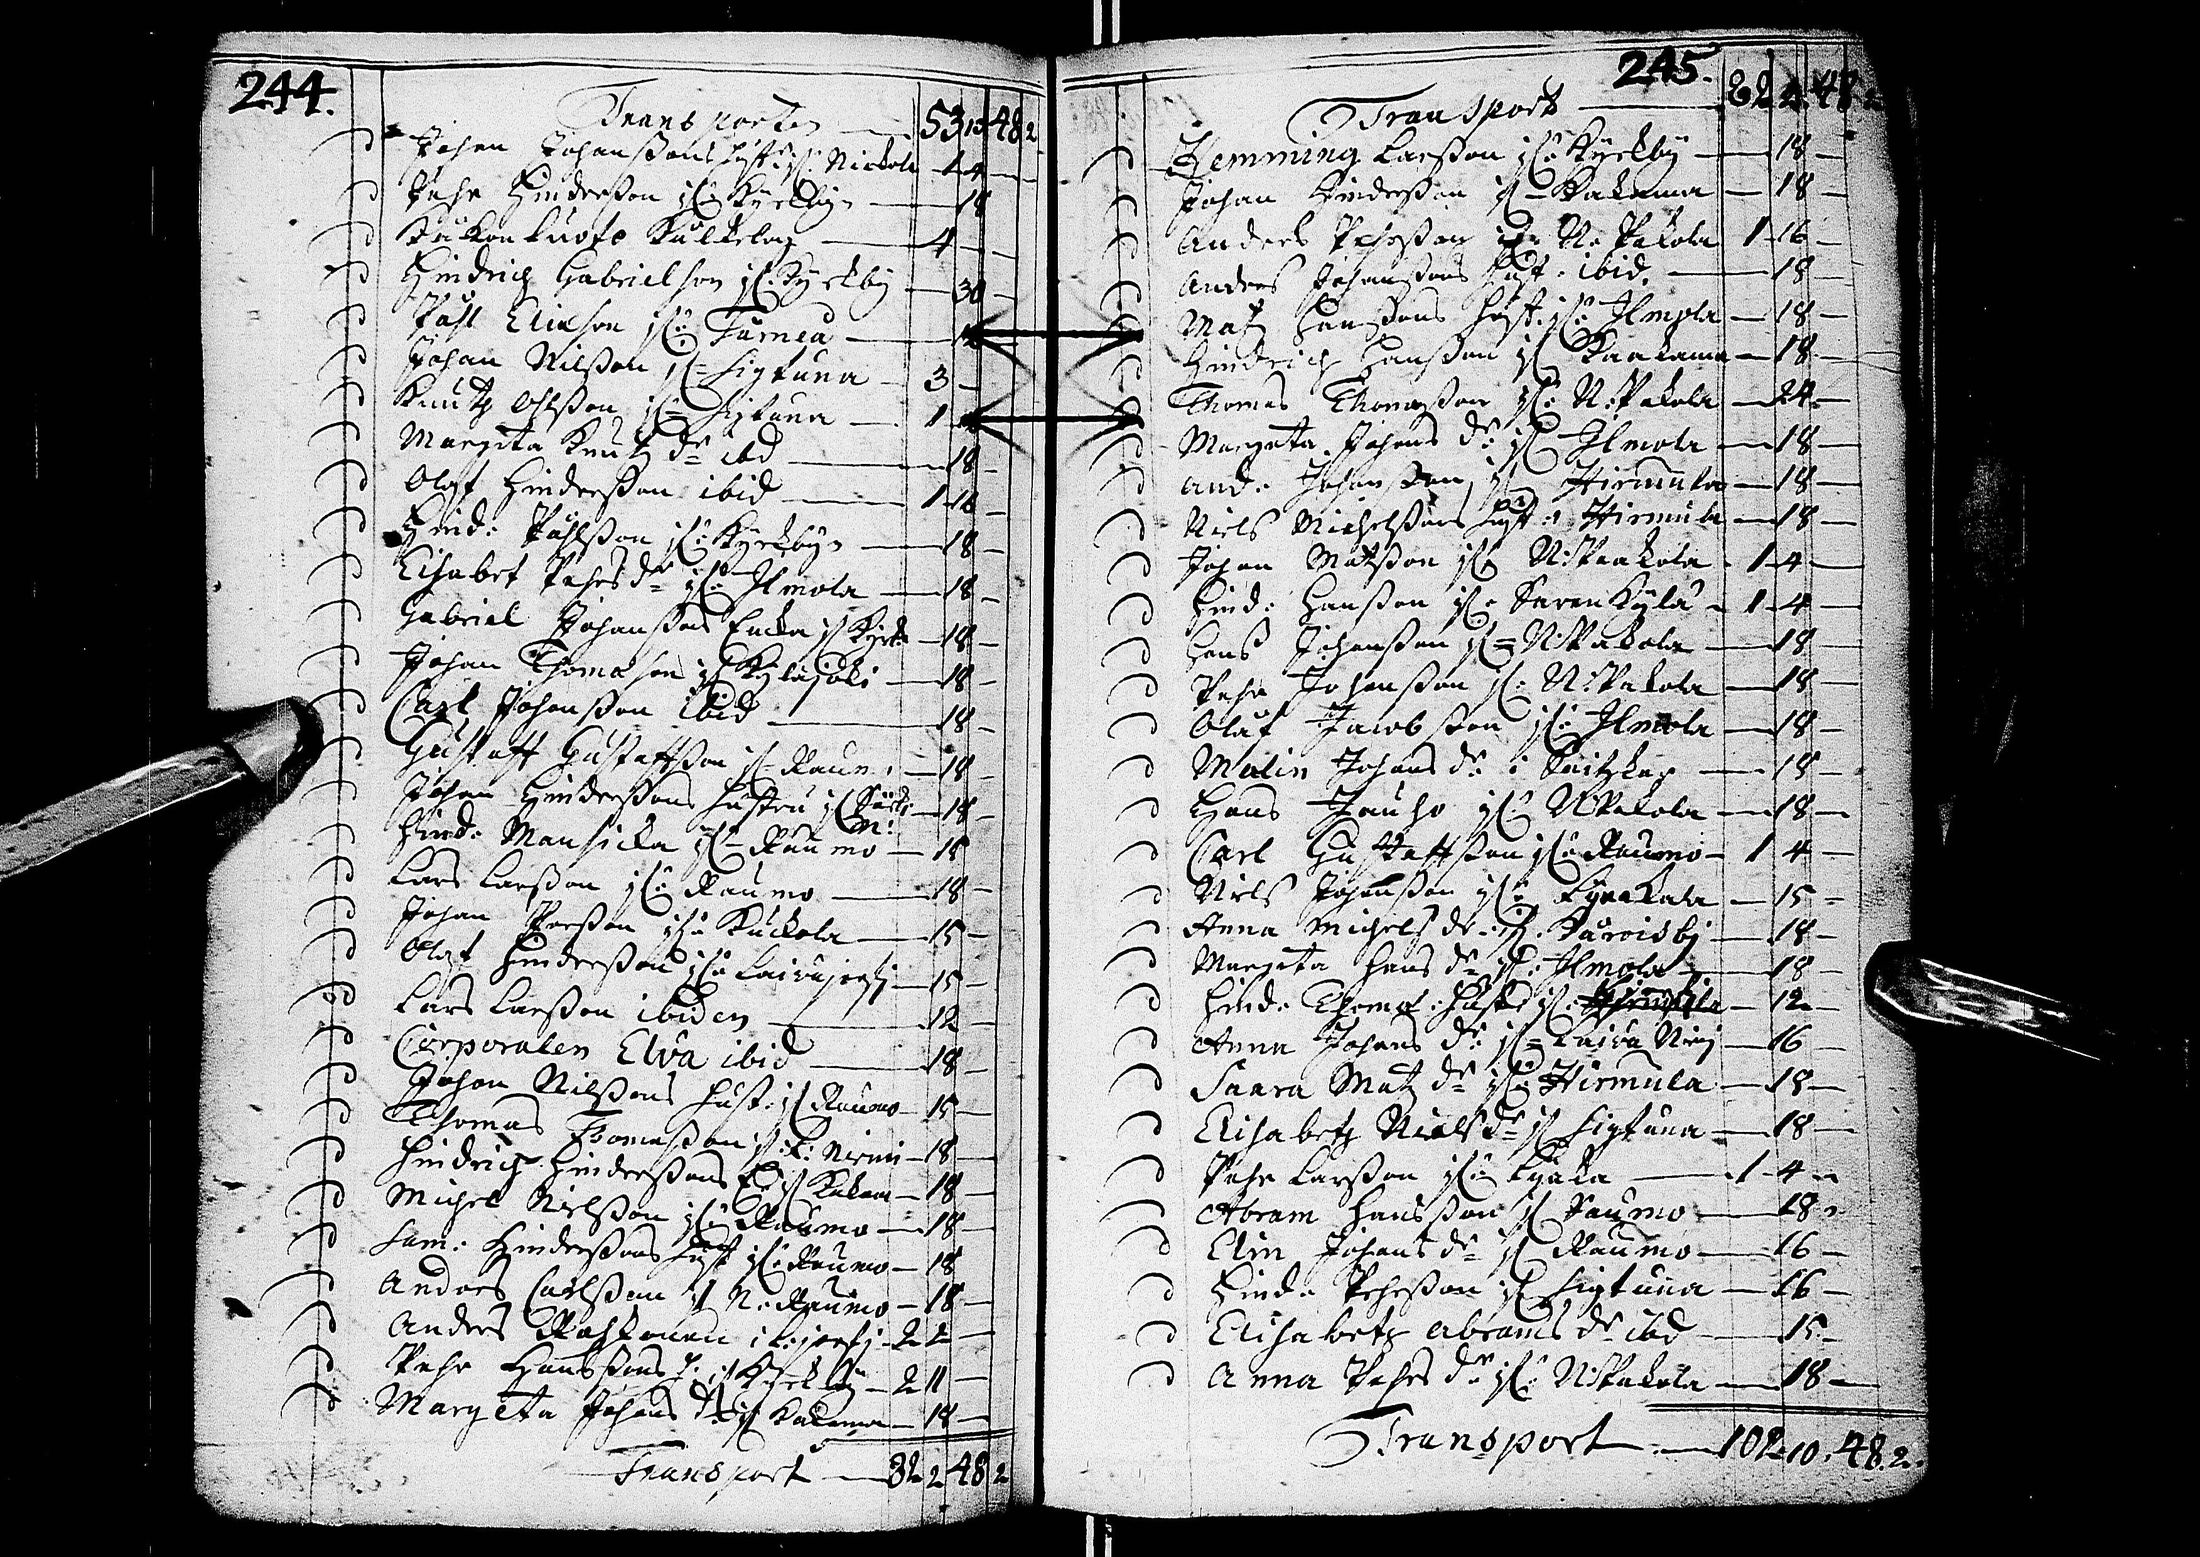 244.
Transporten — 53 13 48 2
Johan Johanßons hust: i Nickola — 1 4 —
Pehr Hinderßon i Kyrkby — 18
4 —
Hindrich Gabrielson i Kyrkby — 30 —
Påhl Erikson i Turnea —
Johan Nilßon i Sigtuna — 3 —
Knutz Olßon i Sigtuna — 1
Margeta Knutz dr ibd — 18 —
Olof Hinderßon ibid — 1 16 —
Hind: Påhlßon i Kyrkby — 18 —
Elisabet Pehrs dr i Ilmola — 18 —
Gabriel Johanßons Encka i Kyrk: — 18 —
Johan Thomason i Kylajoki — 18 —
Carl Johanßon ibid — 18 —
Gustaff Gustaffßon i Raumo — 18 —
Johan Hinderßons hustru i — 18 —
Hind: Mansicka i Raumo — 15
Lars Larßon i Raumo — 18 —
Johan Perßon i Kuckola — 15 —
Olof Hinderßon i Laivajerfj — 15 —
Lars Larßon ibiden — 12 —
Corporalen Elva ibid — 18 —
Johan Nilßons hust: i Raumo — 15 —
Thomas Thomaßon i L: Niemi — 18 —
Hindrich Hinderßons E: i Kakama — 18 —
Michel Nielßon i Raumo — 18 —
Sam: Hinderßons hust i Raumo — 18
Anders Carlßon i N: Raumo — 18 —
Anders i L: jerfj — 2 2 —
Pehr Hanßons h: i Kyrkby — 2 11 —
Margeta Johans dr i Kakama — 18 —
Transport — 82 2 48 2
245.
Transport — 82 2 48 2
Hemming Larßon i Kyrkby — 18 —
Johan Hinderßon i Kakama — 18 —
Anders Pehrßon i N: Vakola 1 16 —
Anders Johanßons hust: ibid. — 18 —
Matz Hanßons hust: i Ilmola — 18 —
Hindrich Hanßon i Kaakama — 18 —
Thomas Thomaßon i N: Vakola — 24 —
Margeta Johans dr i Ilmola — 18 —
And: Johanßon i Hirmula — 18 —
Niels Michelßons hust i Hirmula — 18 —
Johan Matßon i N: Vaakola — 1 4 —
Hind: Hanßon i Sarenkylä — 1 4 —
Hans Johanßon i N: Vakola — 18 —
Pehr Johanßon i N: Vakola — 18 —
Olaf Jacobßon i Ilmola — 18 —
Malin Johans dr i — 18 —
Hans Jauho i N: Vakola — 18 —
Carl Gustaffßon i Raumo — 1 4 —
Niels Johanßon i — 15 —
Anna Michels dr i — 18 —
Margeta Hans dr i Ilmola — 18 —
Hind: Thomaß: hust i — 12 —
Anna Johans dr i Laiva Niemj — 16 —
Saara Matz dr i Hirmula — 18 —
Elisabetz Niels dr i Sigtuna — 18 —
Pehr Larßon i — 1 4 —
Abram Hansßon i Raumo — 18 —
Elin Johans dr i Raumo — 16 —
Hind: Pehrßon i Sigtuna — 16 —
Elisabetz Abrams dr ibd — 15 —
Anna Pehrs dr i N: Vakola — 18 —
Transport — 102. 10. 48. 2.